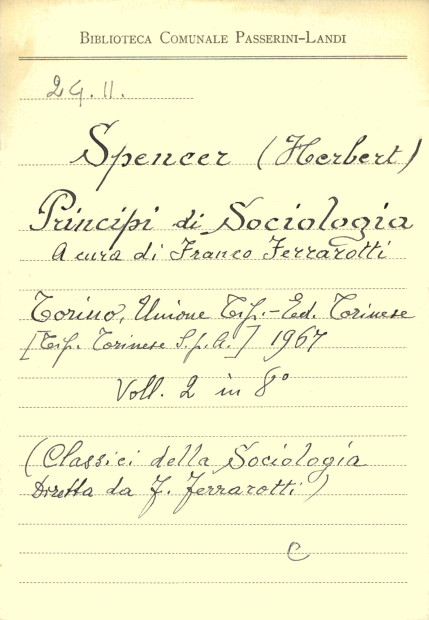 BIBLIOTECA COMUNALE PASSERINI-LANDI
2G.11.
Spencer (Herbert)
Principi di Sociologia
A cura di Franco Ferrarotti
Torino, Unione Tip.-Ed. Torinese
[Tip. Torinese S.p.A.] 1967
Voll. 2 in 8°
(Classici della Sociologia
Diretta da F. Ferrarotti)
C